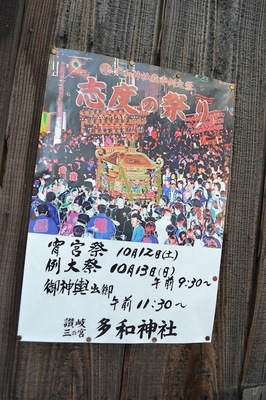 志度の祭り
宵宮祭 10月12日(土)
例大祭 10月13日(日)
午前9:30~
御神輿出御
午前11:30~
讃岐
三の宮 多和神社